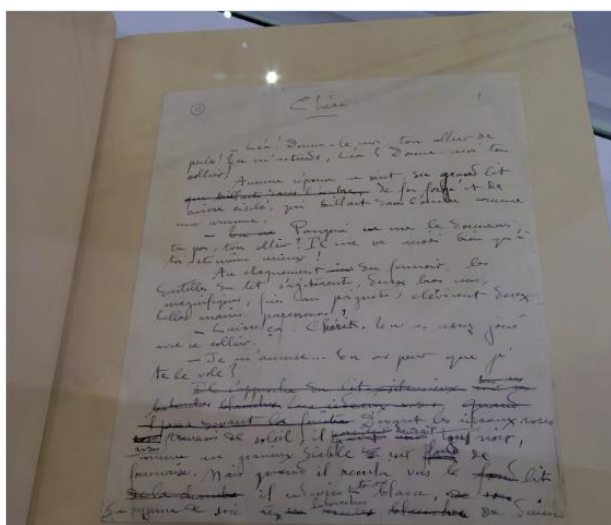 Chéri 1
— Léa! Donne-le moi, ton collier de
perles! Tu m'entends, Léa? Donne-moi ton
collier!
Aucune réponse ne vint du grand lit
qui brillait dans l'ombre, de fer forgé et de
cuivre ciselé, qui brillait dans l'ombre comme
une armure.
— Pourquoi ne me le donnerais-
tu pas, ton collier? Il me va aussi bien qu'à
toi et même mieux!
Au claquement du fermoir, les
dentelles du lit s'agitèrent, deux bras nus,
magnifiques, fins au poignet, élevèrent deux
belles mains paresseuses.
— Laisse ça, Chéri, tu as assez joué
avec ce collier.
— Je m'amuse... Tu as peur que je
te le vole?
Il s'approcha du lit, silencieux
babouches blanches Les rideaux roses quand
il passa devant la fenêtre Devant les rideaux roses
traversés de soleil, il dansait tout noir,
comme un gracieux diable sur fond de
fournaise. Mais quand il recula vers le lit
de la chambre il redevint blanc,
du pyjama de soie aux babouches de daim